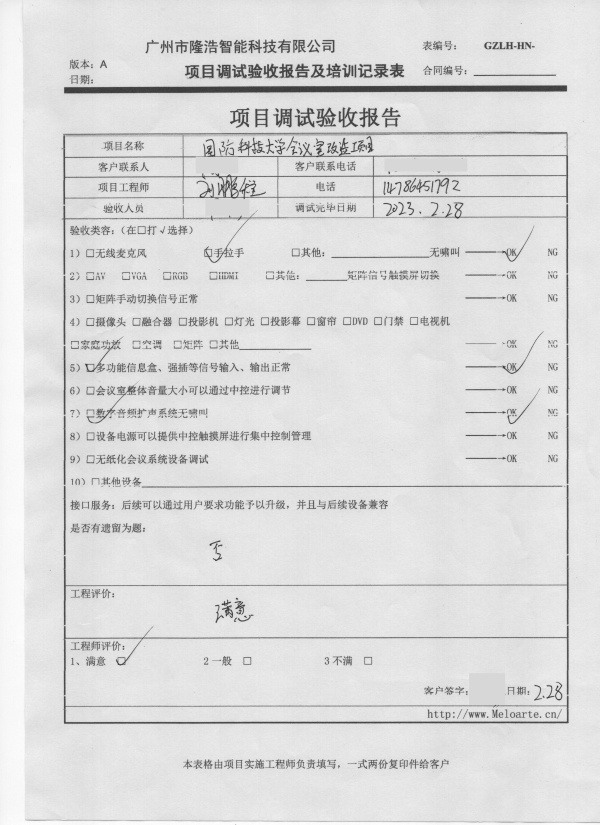 广州市隆浩智能科技有限公司 表编号: GZLH-HN-
版本: A 项目调试验收报告及培训记录表 合同编号:
日期:
项目调试验收报告
项目名称 国防科技大学会议室改造项目
客户联系人 客户联系电话
项目工程师 电话 14786451792
验收人员 调试完毕日期 2023.2.28
验收类容:(在□打√选择)
1)□无线麦克风 ☑手拉手 □其他: 无啸叫 →OK NG
2)□AV □VGA □RGB □HDMI □其他: 矩阵信号触摸屏切换 →OK NG
3)□矩阵手动切换信号正常 →OK NG
4)□摄像头 □融合器 □投影机 □灯光 □投影幕 □窗帘 □DVD □门禁 □电视机
□家庭功放 □空调 □矩阵 □其他 →OK NG
5)☑多功能信息盒、强插等信号输入、输出正常 →OK NG
6)□会议室整体音量大小可以通过中控进行调节 →OK NG
7)☑数字音频扩声系统无啸叫 →OK NG
8)□设备电源可以提供中控触摸屏进行集中控制管理 →OK NG
9)□无纸化会议系统设备调试 →OK NG
10)□其他设备
接口服务: 后续可以通过用户要求功能予以升级,并且与后续设备兼容
是否有遗留为题:
否
工程评价:
满意
工程师评价:
1、满意 ☑ 2一般 □ 3不满 □
客户签字: 日期: 2.28
http://www.Meloarte.cn/
本表格由项目实施工程师负责填写,一式两份复印件给客户